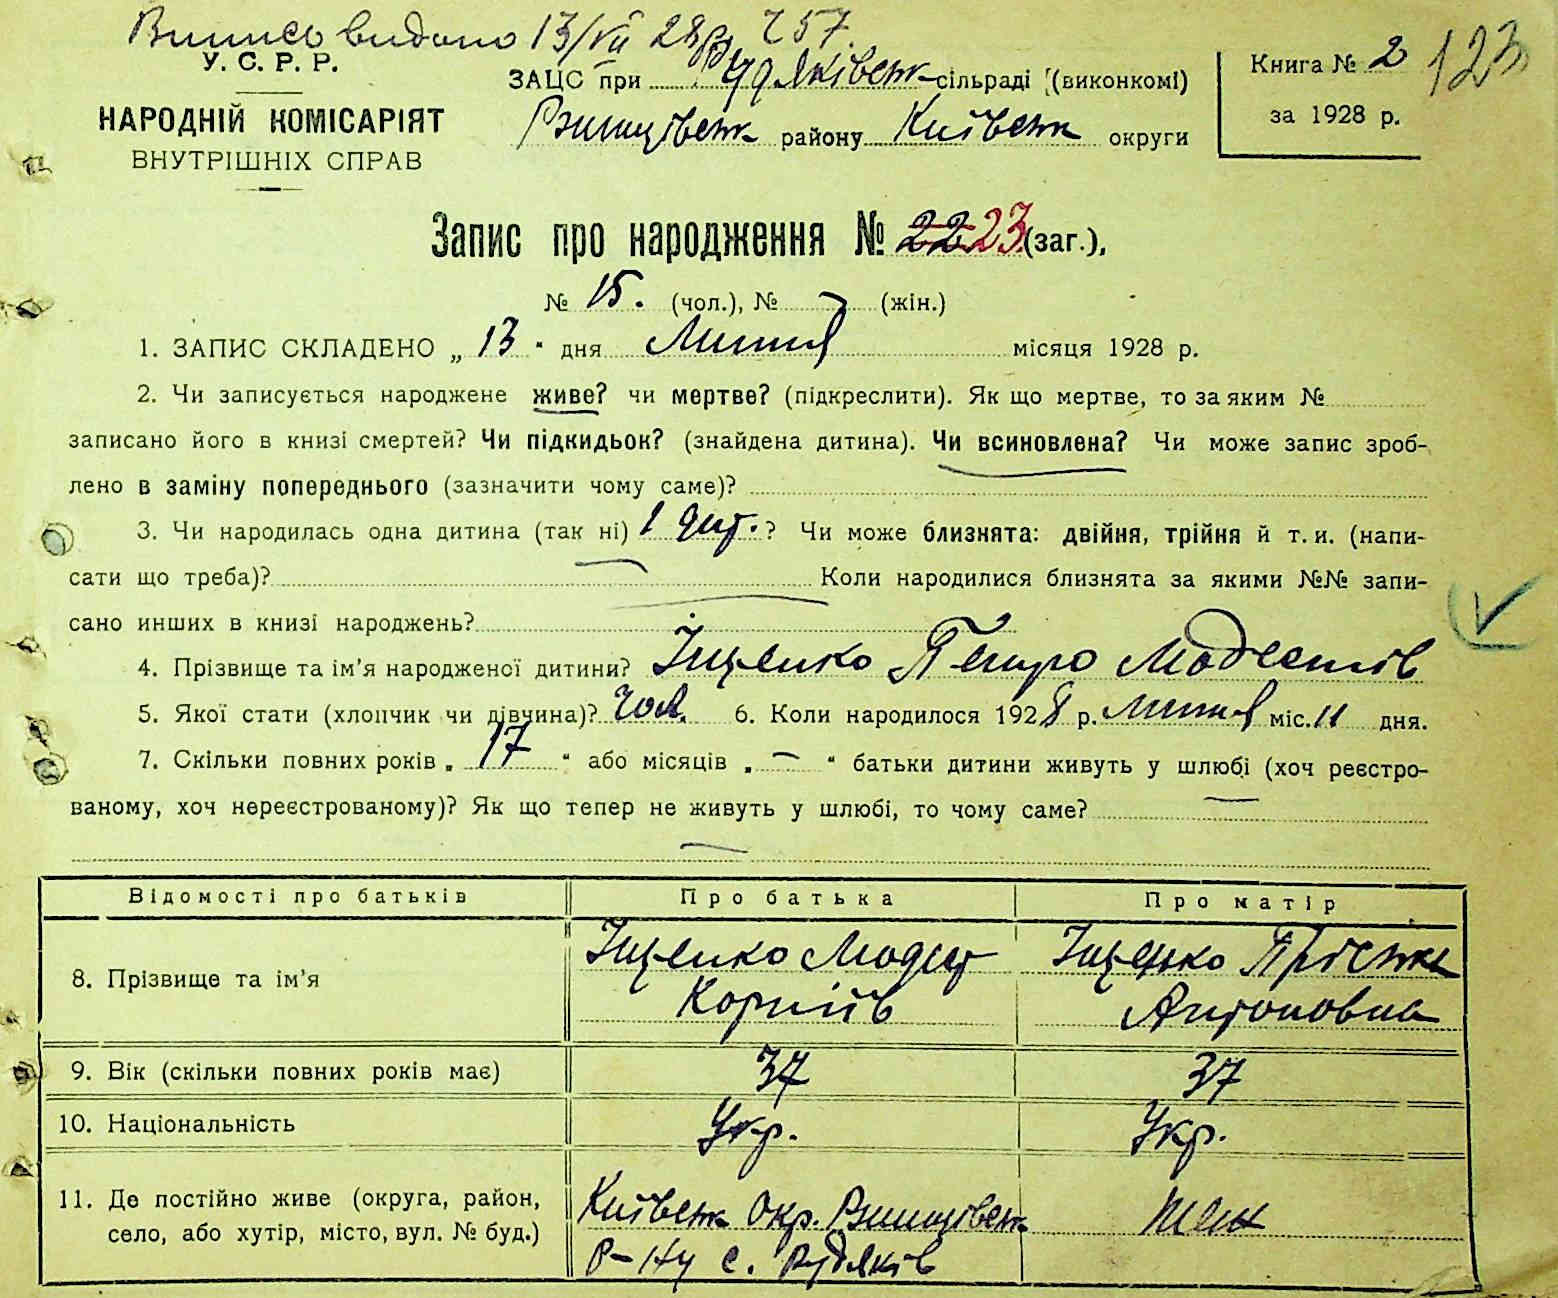 Випись видано 13/VII 28р. Ч 57.
У. С. Р. Р.
НАРОДНІЙ КОМІСАРІЯТ
ВНУТРІШНІХ СПРАВ
ЗАЦС при Рудяківськ сільраді (виконкомі)
Ржищівськ району Київськ округи
Книга № 2
за 1928 р.
123
Запис про народження № 22 23 (заг.),
№ 15. (чол.), № 7 (жін.)
1. ЗАПИС СКЛАДЕНО „ 13 “ дня Липня місяця 1928 р.
2. Чи записується народжене живе? чи мертве? (підкреслити). Як що мертве, то за яким №
записано його в книзі смертей? Чи підкидьок? (знайдена дитина). Чи всиновлена? Чи може запис зроб-
лено в заміну попереднього (зазначити чому саме)?
3. Чи народилась одна дитина (так ні) 1 дит. ? Чи може близнята: двійня, трійня й т. и. (напи-
сати що треба)? Коли народилися близнята за якими №№ запи-
сано инших в книзі народжень?
4. Прізвище та ім’я народженої дитини? Іщенко Петро Модестів
5. Якої стати (хлопчик чи дівчина)? Чол. 6. Коли народилося 1928 р. Липня міс. 11 дня.
7. Скільки повних років „ 17 “ або місяців „ — “ батьки дитини живуть у шлюбі (хоч реєстро-
ваному, хоч нереєстрованому)? Як що тепер не живуть у шлюбі, то чому саме? —
—
Відомості про батьків Про батька Про матір
8. Прізвище та ім’я Іщенко Модест Корніїв Іщенко Пріська Антоновна
9. Вік (скільки повних років має) 37 37
10. Національність Укр. Укр.
11. Де постійно живе (округа, район, Київськ Окр. Ржищівськ
село, або хутір, місто, вул. № буд.) Р-ну с. Рудяків